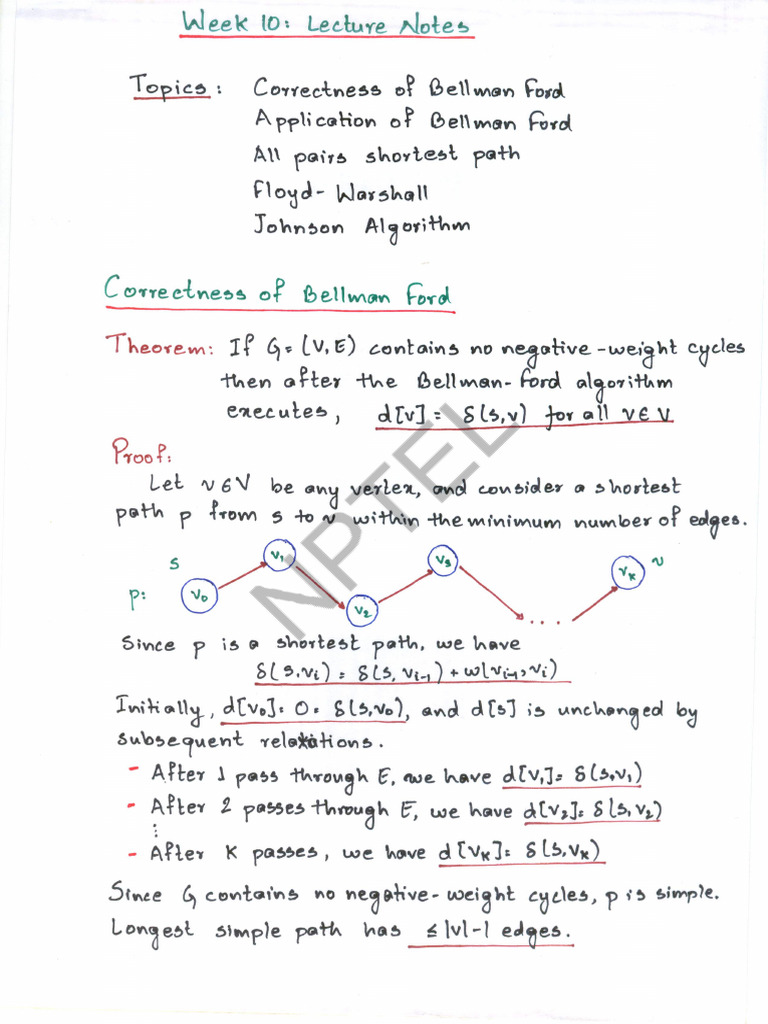 Week 10: Lecture Notes
Topics: Correctness of Bellman Ford
Application of Bellman Ford
All pairs shortest path
Floyd-Warshall
Johnson Algorithm
Correctness of Bellman Ford
Theorem: If G=(V,E) contains no negative-weight cycles
then after the Bellman-Ford algorithm
executes, d[v]= δ(s,v) for all v∈V
Proof:
Let v∈V be any vertex, and consider a shortest
path p from s to v within the minimum number of edges.
s v₁ v₃ v
p: v₀ v₂ .... vₖ
Since p is a shortest path, we have
δ(s,vᵢ) = δ(s,vᵢ₋₁) + w(vᵢ₋₁,vᵢ)
Initially, d[v₀]=0=δ(s,v₀), and d[s] is unchanged by
subsequent relaxations.
- After 1 pass through E, we have d[v₁]= δ(s,v₁)
- After 2 passes through E, we have d[v₂]= δ(s,v₂)
⋮
- After K passes, we have d[vₖ]= δ(s,vₖ)
Since G contains no negative-weight cycles, p is simple.
Longest simple path has ≤|v|-1 edges.
NPTEL